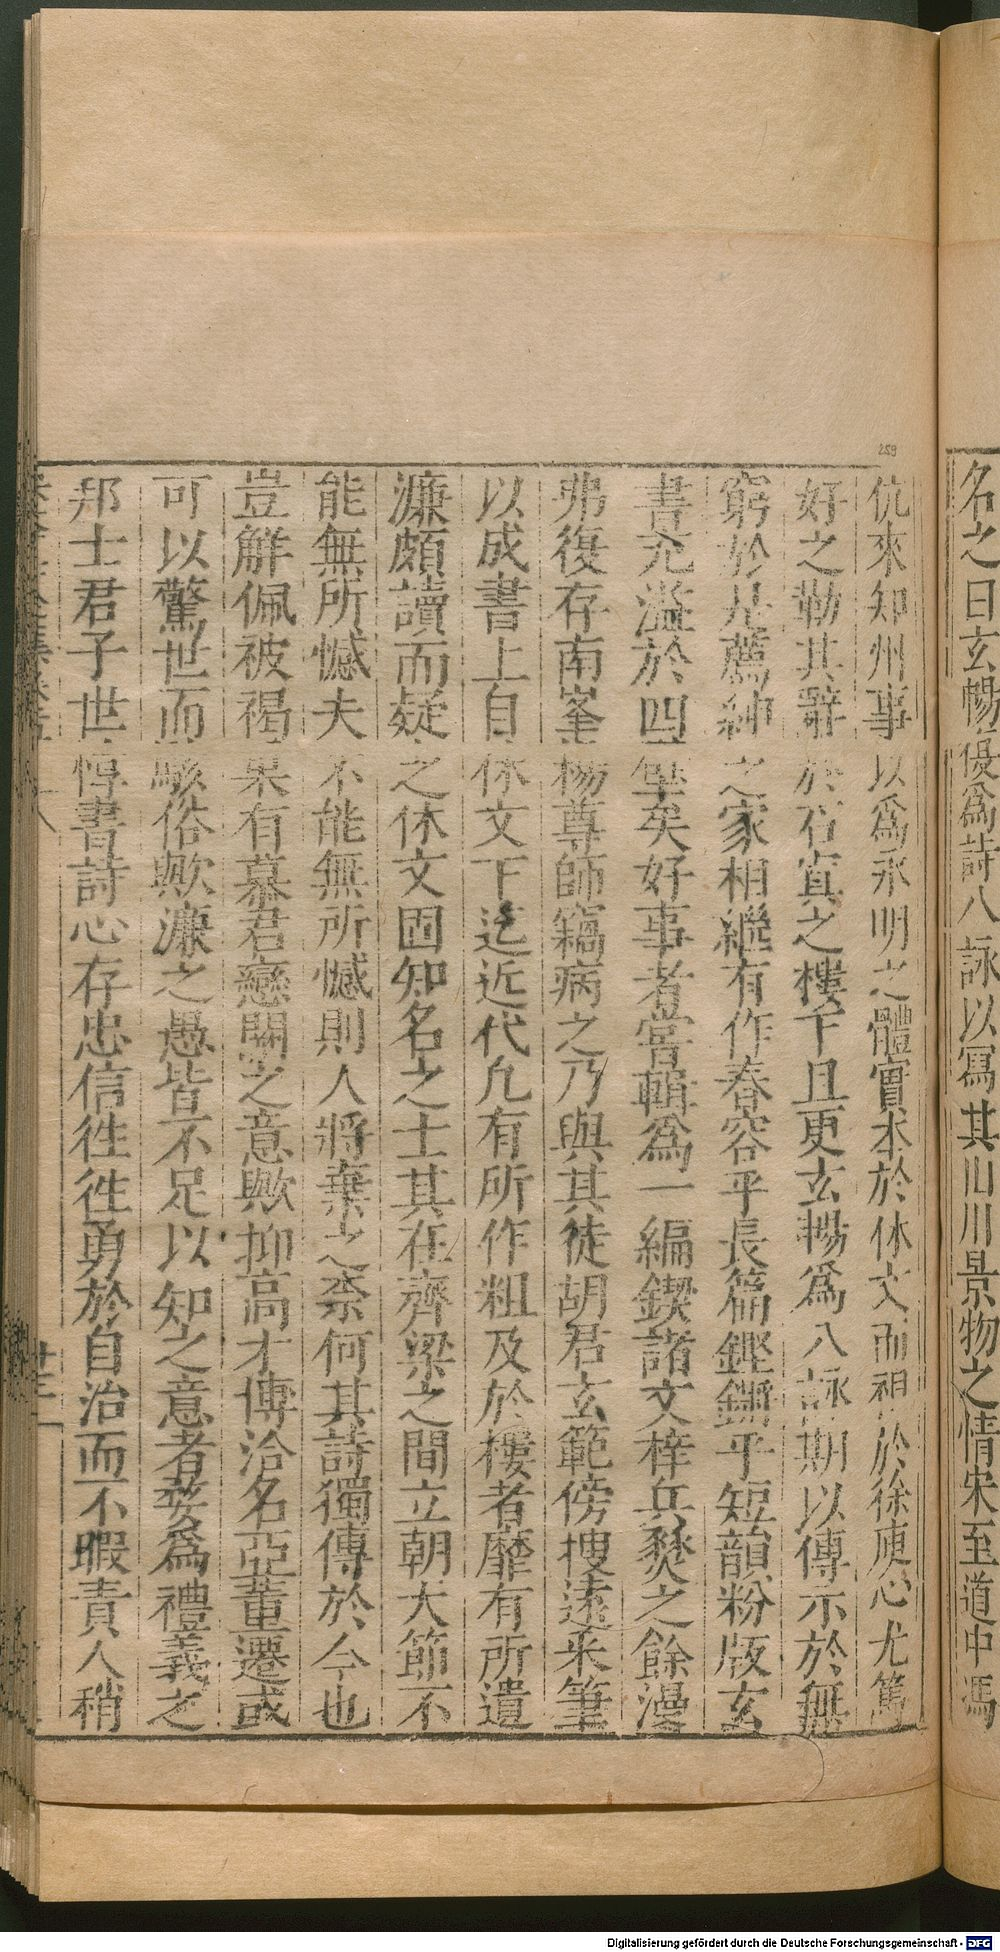 名之曰玄暢復爲詩八詠以寫其山川景物之情宋至道中馮
伉來知州事以爲永明之體實本於休文而祖於徐庾心尤篤
好之勒其辭於石寘之樓下且更玄暢爲八詠期以傳示於無
窮於是薦紳之家相繼有作舂容乎長篇鏗鏘乎短韻粉版玄
書充溢於四壁矣好事者嘗輯爲一編鍥諸文梓兵燹之餘漫
弗復存南峯楊尊師竊病之乃與其徒胡君玄範傍搜遠采筆
以成書上自休文下迄近代凡有所作粗及於樓者靡有所遺
濂頗讀而疑之休文固知名之士其在齊梁之間立朝大節不
能無所憾夫不能無所憾則人將棄之柰何其詩獨傳於今也
豈解佩被褐果有慕君戀闕之意歟抑高才博洽名亞董遷或
可以驚世而駭俗歟濂之愚皆不足以知之意者婺爲禮義之
邦士君子世惇書詩心存忠信徃徃勇於自治而不暇責人稍
259
Digitalisierung gefördert durch die Deutsche Forschungsgemeinschaft - DFG